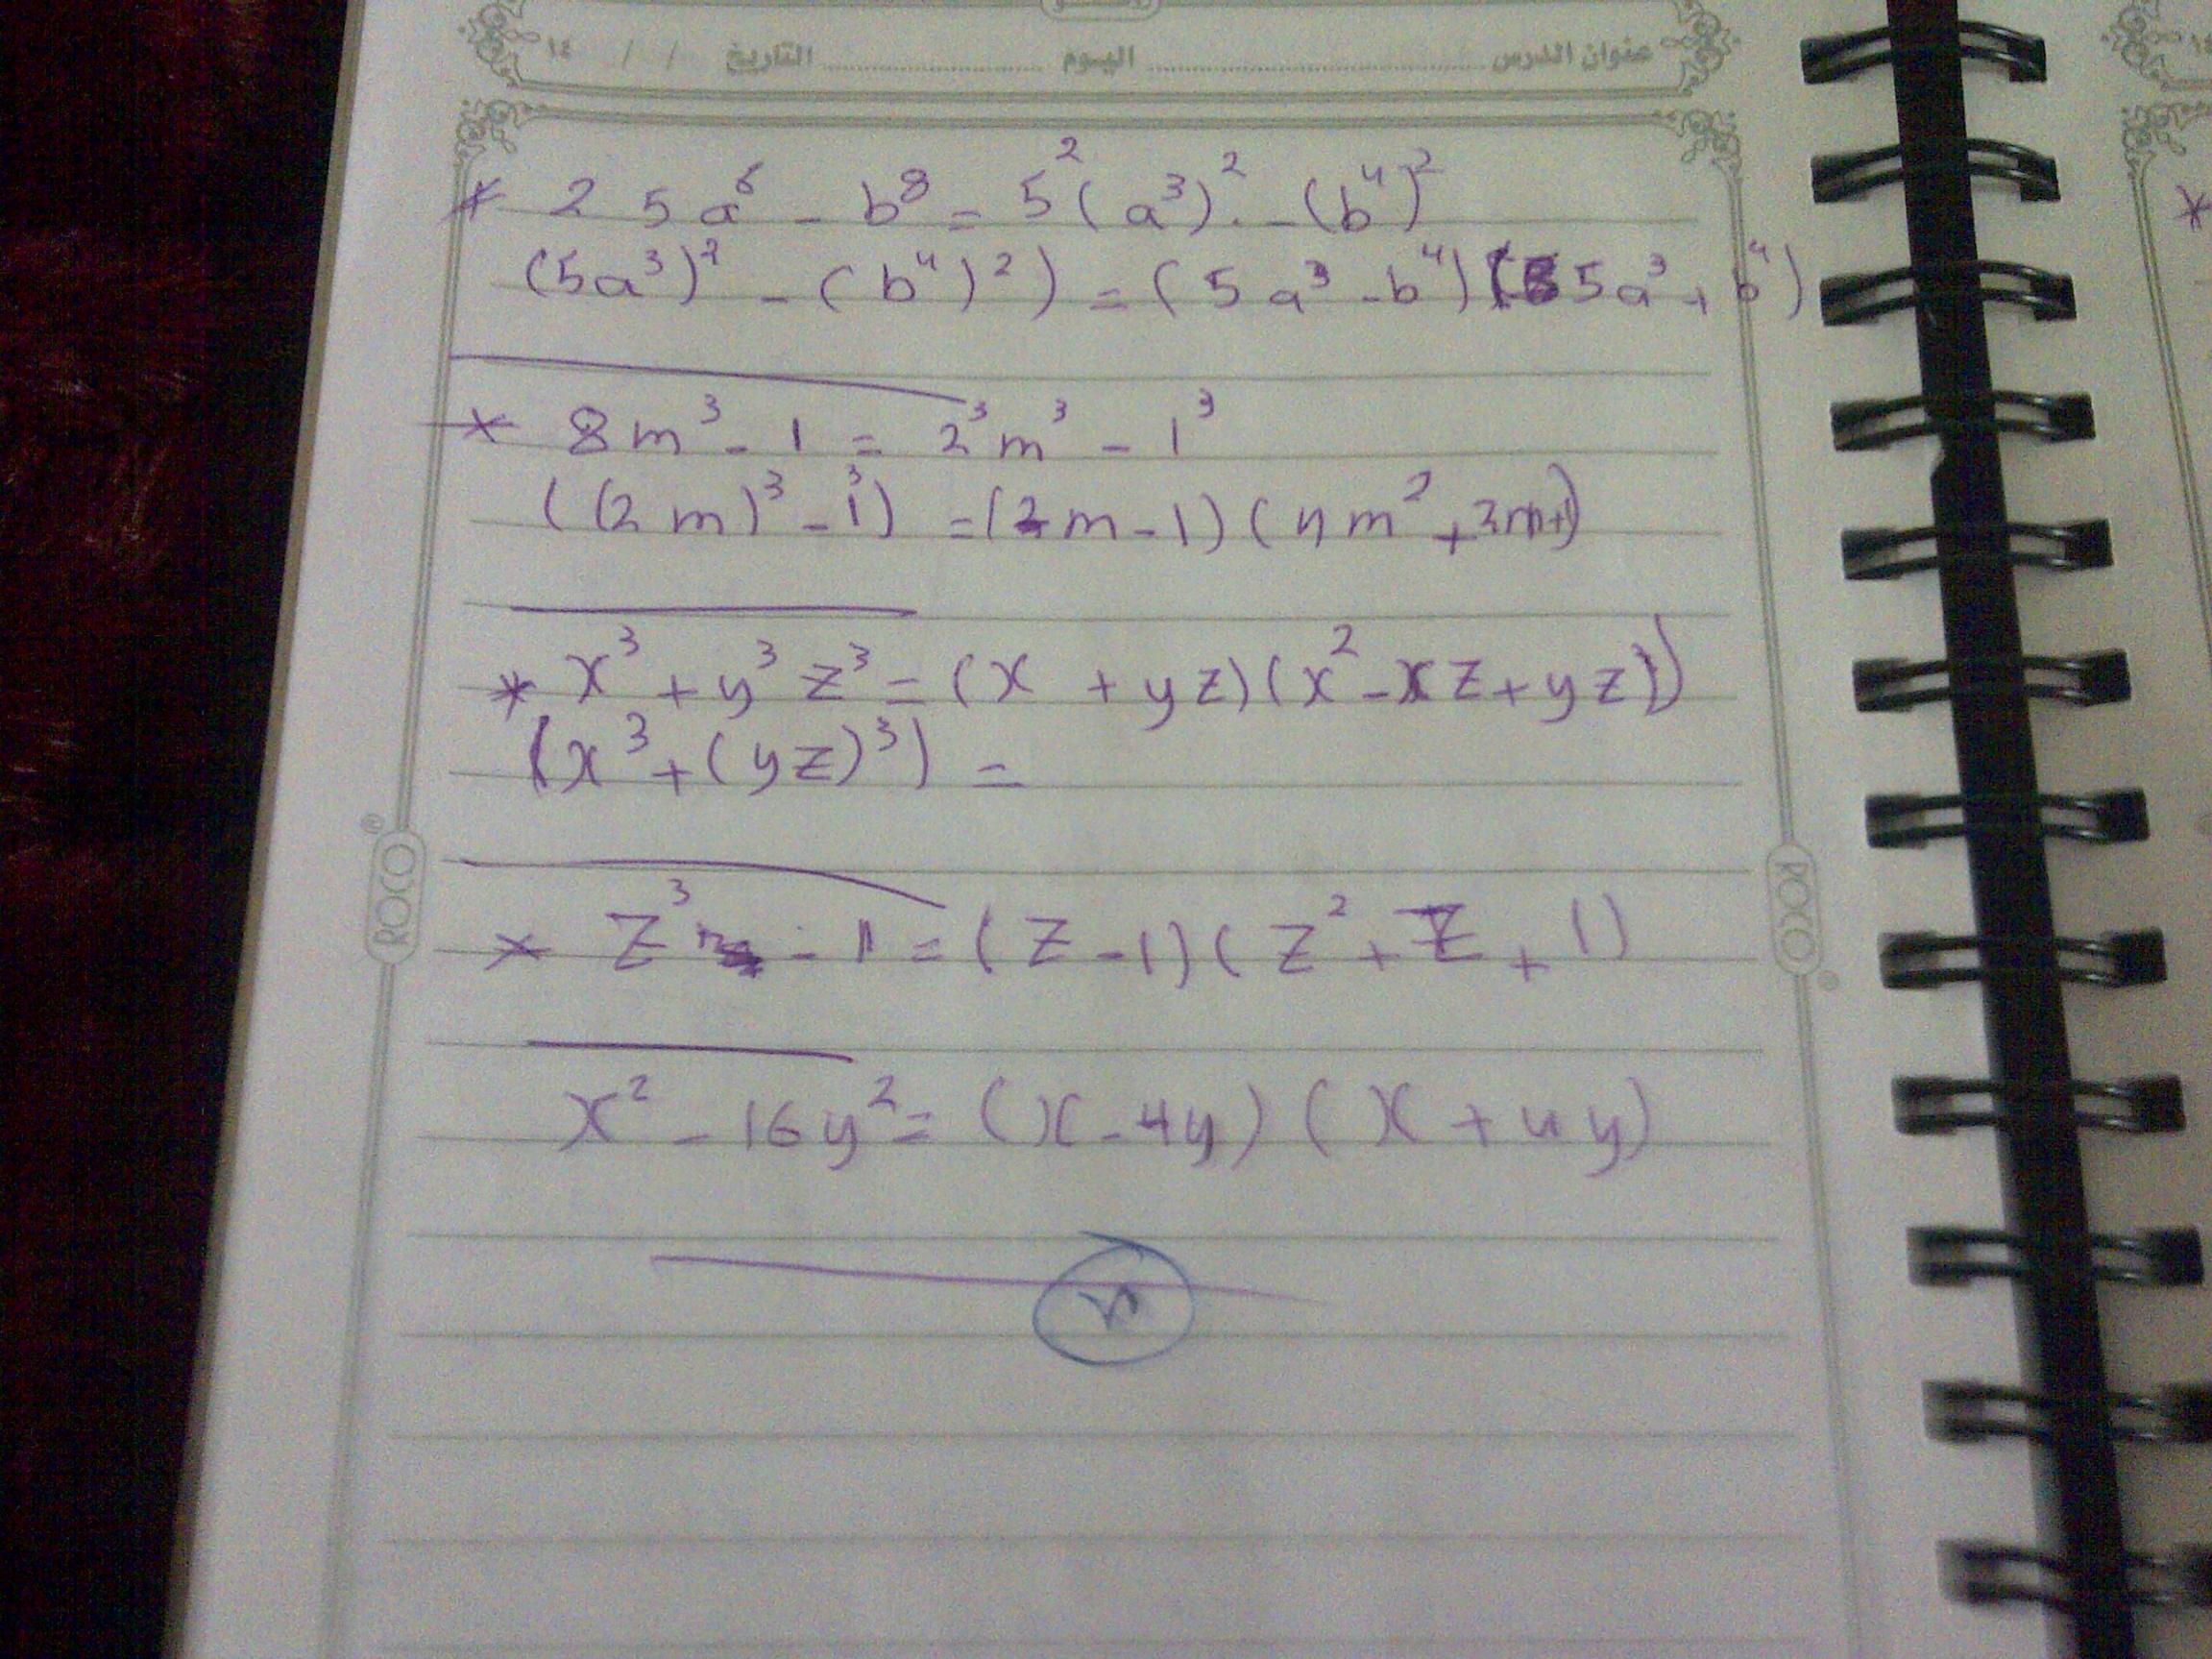 عنوان الدرس ........ اليوم ........ التاريخ / / ١٤
* 25a⁶ - b⁸ = 5²(a³)² . - (b⁴)²
(5a³)² - (b⁴)²) = (5a³ - b⁴)(5a³ + b⁴)
* 8m³ - 1 = 2³m³ - 1³
((2m)³ - 1³) = (2m - 1)(4m² + 2m + 1)
* x³ + y³z³ = (x + yz)(x² - xz + yz))
(x³ + (yz)³) =
* z³ - 1 = (z - 1)(z² + z + 1)
x² - 16y² = (x - 4y)(x + 4y)
ROCO®
ROCO®